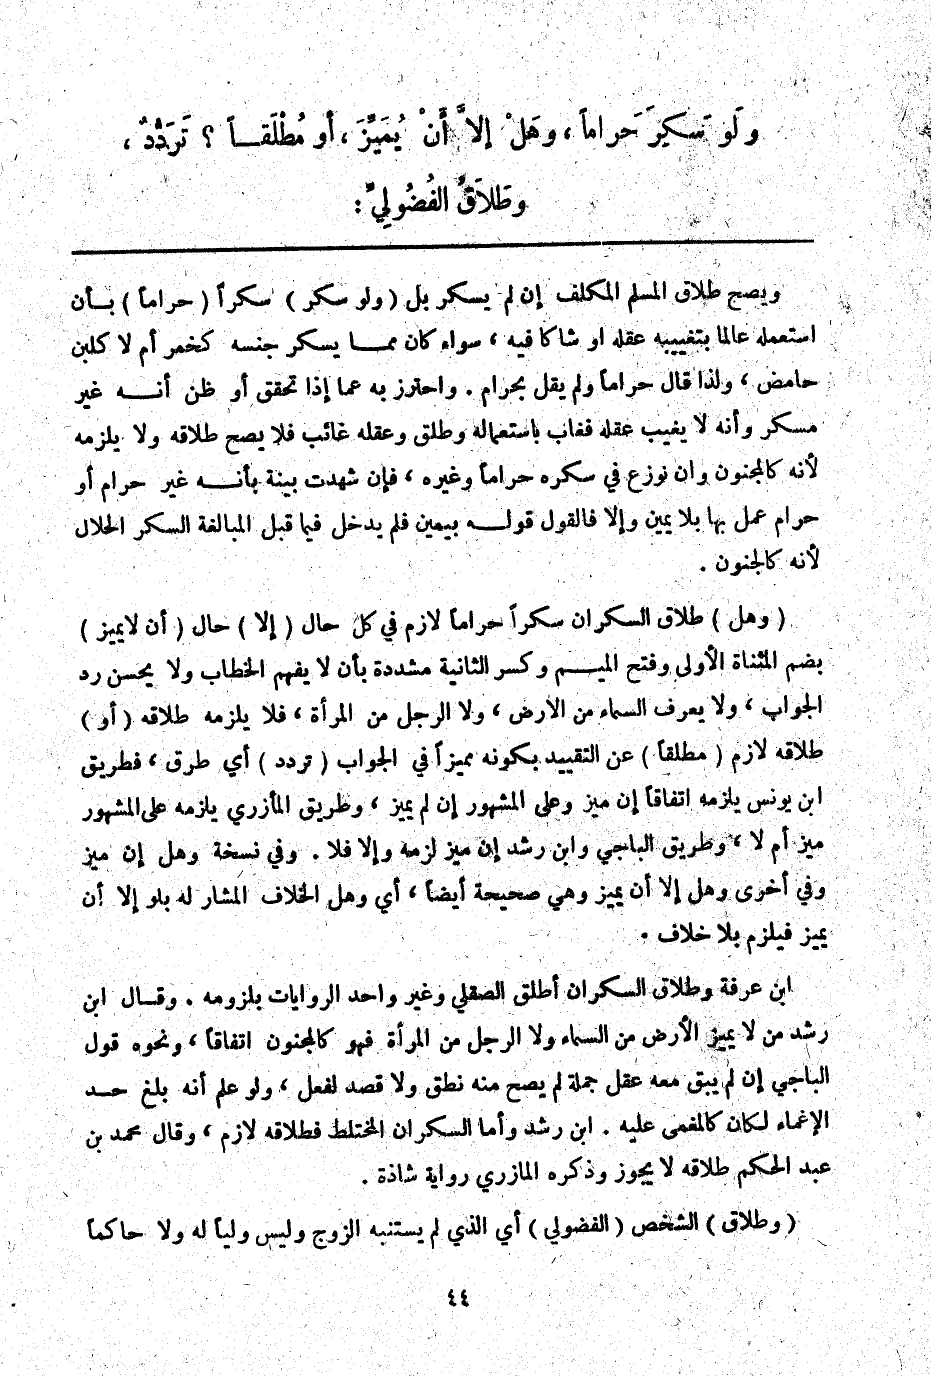 ولَو سَكِرَ حَراماً ، وهَلْ إلاَّ أَنْ يُمَيِّزَ ، أو مُطْلَقــاً ؟ تَرَدُّدٌ ،
وطَلاَقُ الفُضُوليِّ :
ويصح طلاق المسلم المكلف إن لم يسكر بل ( ولو سكر ) سكراً ( حراماً ) بــأن
استعمله عالما بتغييبه عقله او شاكا فيه ، سواء كان ممــا يسكر جنسه كخمر أم لا كلبن
حامض ، ولذا قال حراماً ولم يقل بحرام . واحترز به عما إذا تحقق أو ظن أنــه غير
مسكر وأنه لا يغيب عقله فغاب باستعماله وطلق وعقله غائب فلا يصح طلاقه ولا يلزمه
لأنه كالمجنون وان نوزع في سكره حراماً وغيره ، فإن شهدت بينة بأنــه غير حرام أو
حرام عمل بها بلا يمين وإلا فالقول قولــه بيمين فلم يدخل فيما قبل المبالغة السكر الحلال
لأنه كالجنون .
( وهل ) طلاق السكران سكراً حراماً لازم في كل حال ( إلا ) حال ( أن لايميز )
بضم المثناة الأولى وفتح الميــم وكسر الثانية مشددة بأن لا يفهم الخطاب ولا يحسن رد
الجواب ، ولا يعرف السماء من الارض ، ولا الرجل من المرأة ، فلا يلزمه طلاقه ( أو )
طلاقه لازم ( مطلقاً ) عن التقييد بكونه مميزاً في الجواب ( تردد ) أي طرق ، فطريق
ابن يونس يلزمه اتفاقاً إن ميز وعلى المشهور إن لم يميز ، وطريق المأزري يلزمه على المشهور
ميز أم لا ، وطريق الباجي وابن رشد إن ميز لزمه وإلا فلا . وفي نسخة وهل إن ميز
وفي أخرى وهل إلا أن يميز وهي صحيحة أيضاً ، أي وهل الخلاف المشار له بلو إلا أن
يميز فيلزم بلا خلاف .
ابن عرفة وطلاق السكران أطلق الصقلي وغير واحد الروايات بلزومه . وقــال ابن
رشد من لا يميز الأرض من السماء ولا الرجل من المرأة فهو كالمجنون اتفاقاً ، ونحوه قول
الباجي إن لم يبق معه عقل جملة لم يصح منه نطق ولا قصد لفعل ، ولو علم أنه بلغ حــد
الإغماء لكان كالمغمى عليه . ابن رشد وأما السكران المختلط فطلاقه لازم ، وقال محمد بن
عبد الحكم طلاقه لا يجوز وذكره المازري رواية شاذة .
( وطلاق ) الشخص ( الفضولي ) أي الذي لم يستنبه الزوج وليس ولياً له ولا حاكماً
٤٤